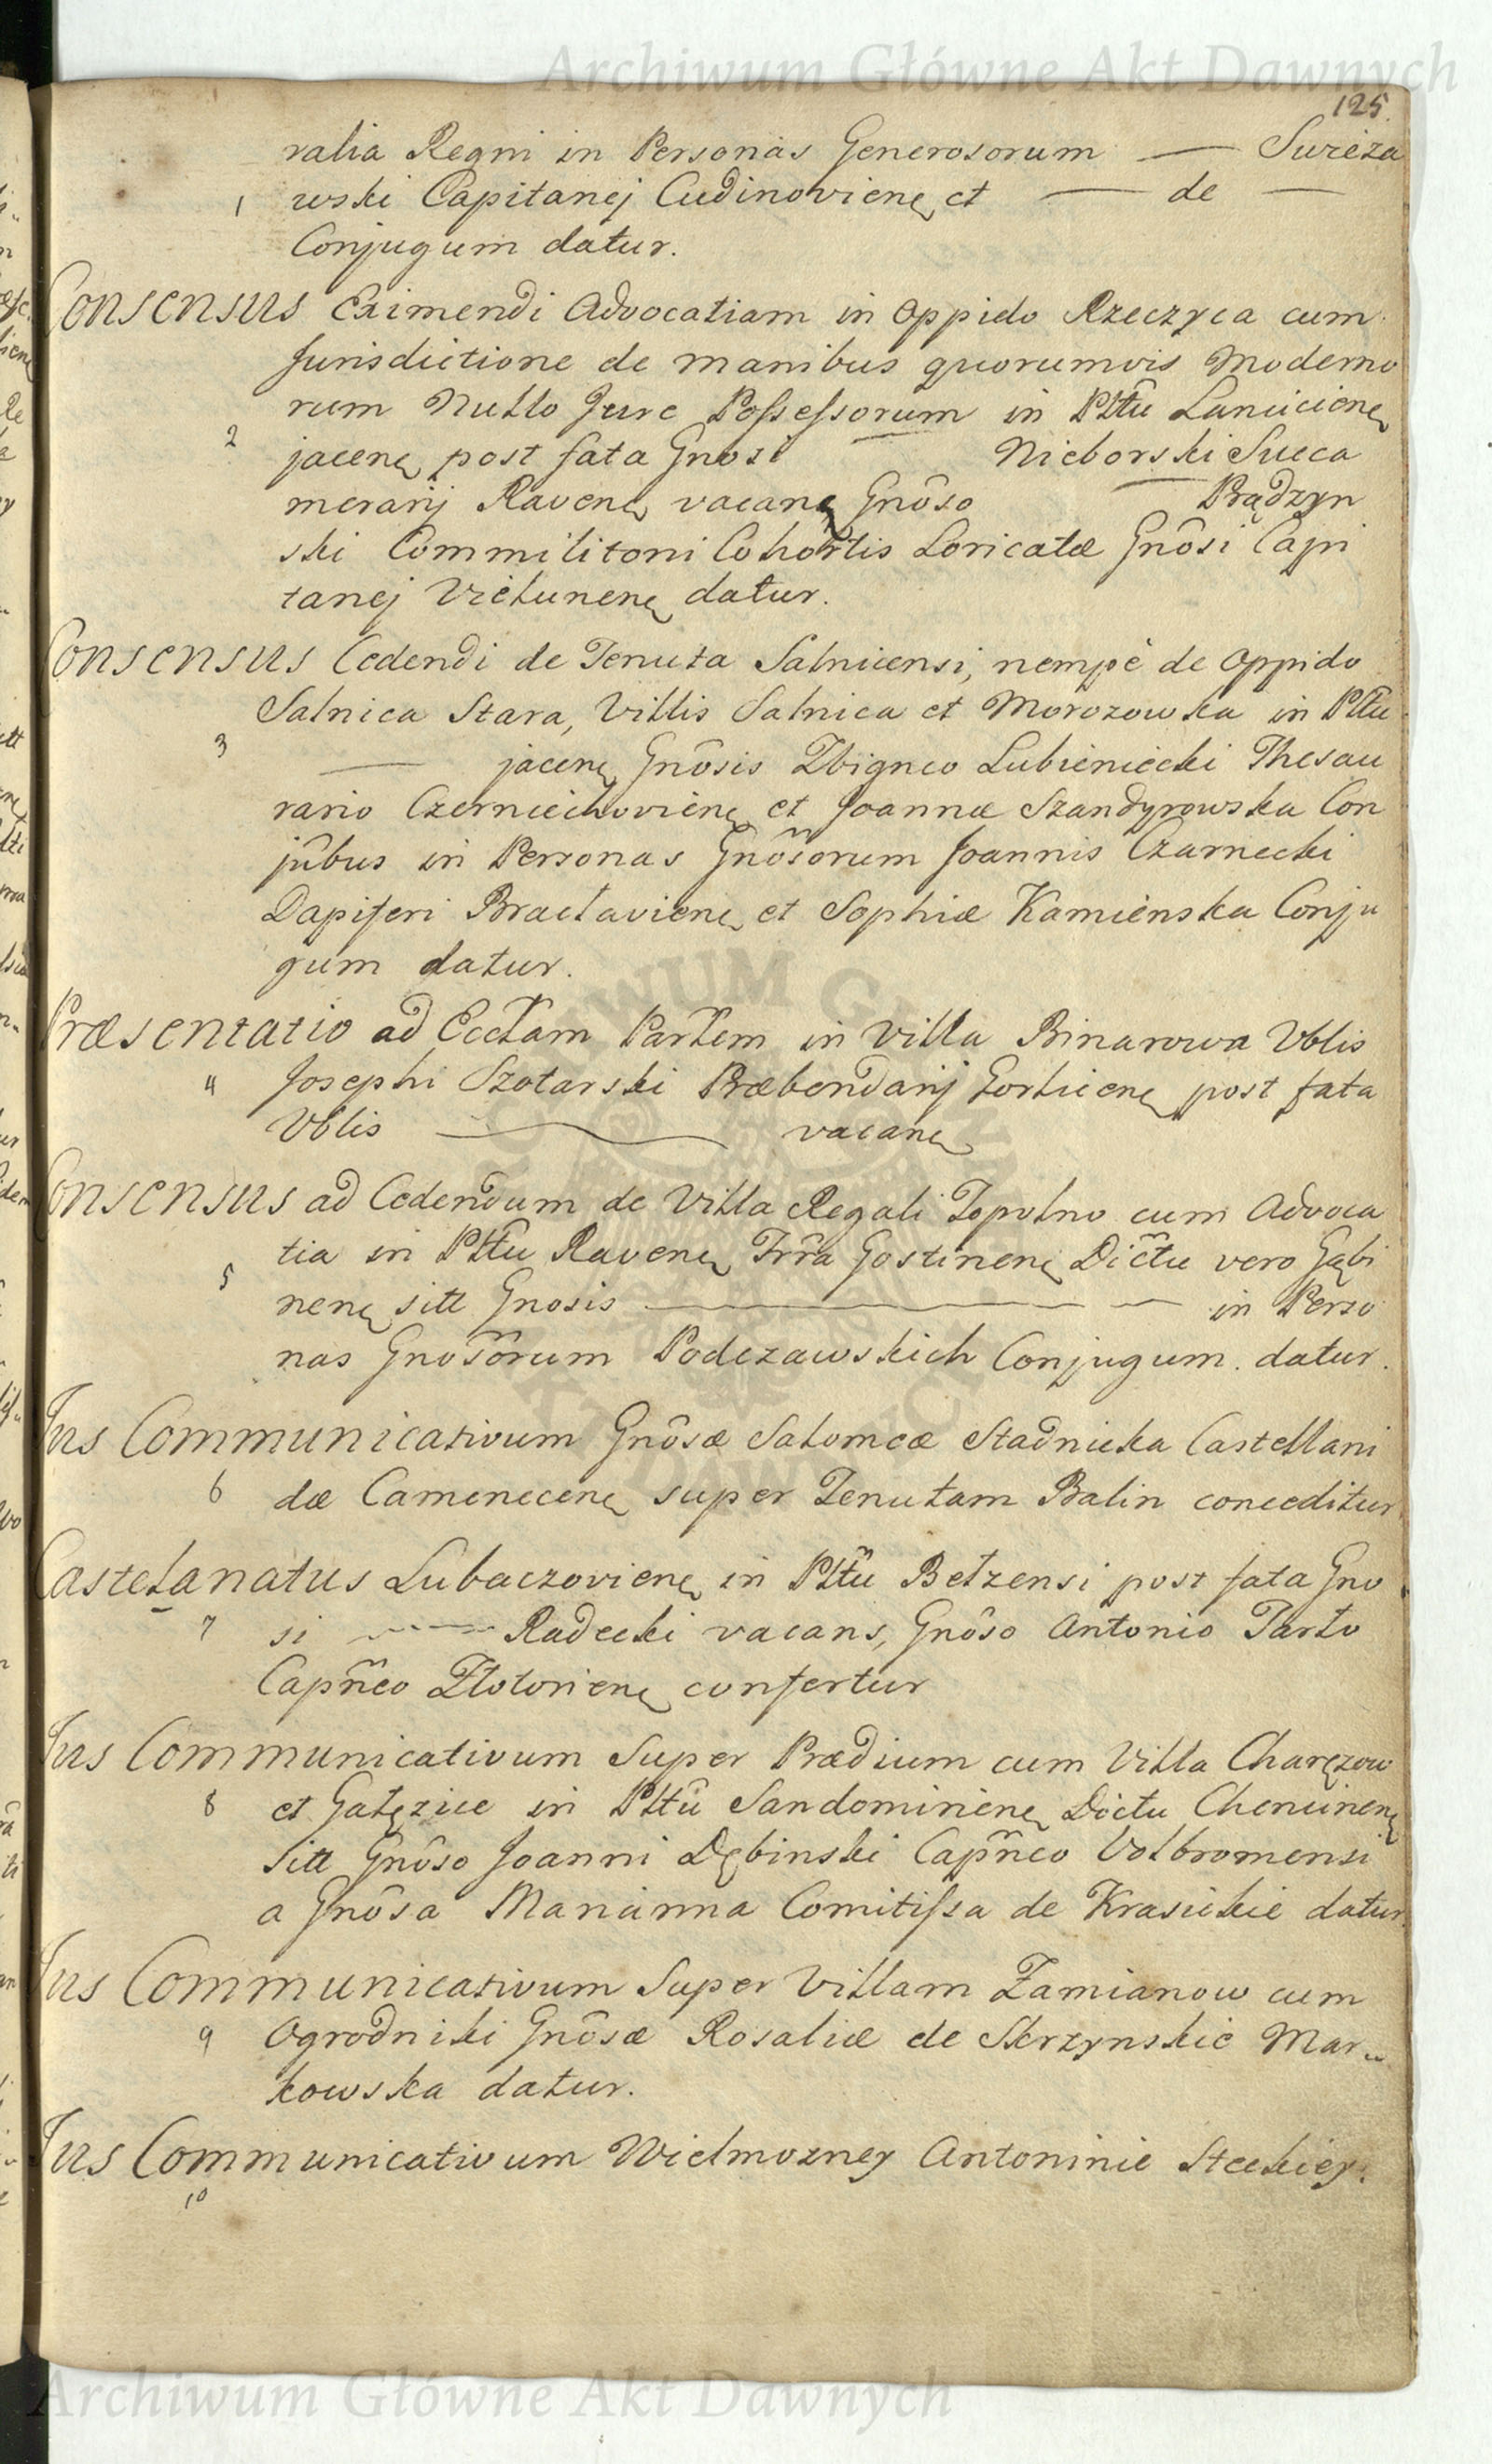 Archiwum Główne Akt Dawnych
125.
ralia Regni in Personas Generosorum — Swieża
1 wski Capitanej Cudinovienę et — de —
Conjugum datur.
Consensus Eximendi Advocatiam in Oppido Rzeczyca cum
Jurisdictione de manibus quorumvis Moderno
rum Nullo Jure Possessorum in Plttu Lancicienę
2 jacenę post fata Gnosi — Nieborski Succa
merarij Ravenę vacanę Gnôso — Prądzyn
ski Commilitoni Cohortis Loricatæ Gnôsi Capi
tanej Vielunenę datur.
Consensus Cedendi de Tenuta Salnicensi, nempè de Oppido
Salnica Stara, Villis Salnica et Morozowka in Plttu
3 — jacenę Gnôsis Zbigneo Lubieniecki Thesau
rario Czerniechovienę et Joannæ Szandyrowska Con
jûbus in Personas Gnôsorum Joannis Czarnecki
Dapiferi Braclavienę et Sophiæ Kamienska Conju
gum datur.
Præsentatio ad Ecclam Parlem in Villa Binarowa Vblis
4 Josephi Szotarski Præbendarij Gorlicenę post fata
Vblis — vacanę
Consensus ad Cedendum de Villa Regali Topolno cum Advoca
tia in Plttu Ravenę Trra Gostinenę Dictu vero Gąbi
5 nenę sitt Gnosis — — in Perso
nas Gnosôrum Podczawskich Conjugum. datur.
Jus Communicativum Gnôsæ Salomeæ Stadnicka Castellani
6 dæ Camenecenę super Tenutam Balin conceditur
Castelanatus Lubaczovienę in Plttu Belzensi post fata Gno
7 si — Radecki vacans, Gnôso Antonio Tarło
Capñeo Zlotorienę confertur
Jus Communicativum Super Prædium cum Villa Charęzow
8 et Gałęzice in Plttu Sandominenę Dictu Chencinenę
Sitt Gnôso Joanni Dębinski Capñeo Volbromensi
a Gnôsa Marianna Comitissa de Krasickie datur.
Jus Communicativum Super Villam Zamianow cum
9 Ogrodniki Gnôsæ Rosaliæ de Skrzynskie Mar-
kowska datur.
Jus Communicativum Wielmozney Antoninie Steckiey.
10
Archiwum Główne Akt Dawnych